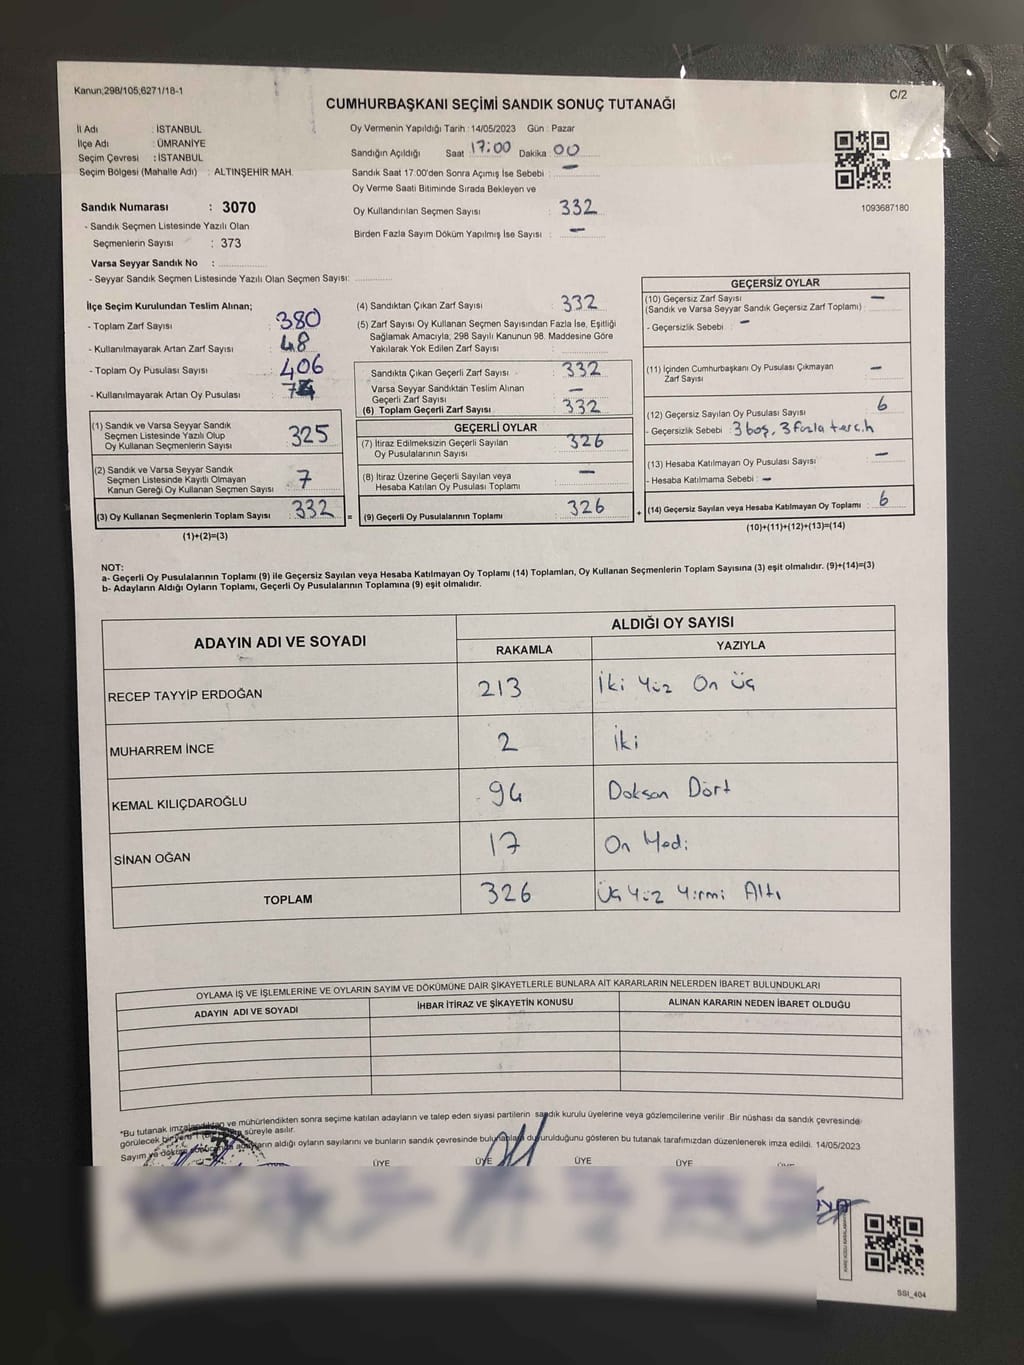 Kanun;298/105,6271/18-1
C/2
CUMHURBAŞKANI SEÇİMİ SANDIK SONUÇ TUTANAĞI
İl Adı : İSTANBUL
İlçe Adı : ÜMRANİYE
Seçim Çevresi : İSTANBUL
Seçim Bölgesi (Mahalle Adı) : ALTINŞEHİR MAH.
Sandık Numarası : 3070
- Sandık Seçmen Listesinde Yazılı Olan
Seçmenlerin Sayısı : 373
Varsa Seyyar Sandık No :
- Seyyar Sandık Seçmen Listesinde Yazılı Olan Seçmen Sayısı:
Oy Vermenin Yapıldığı Tarih : 14/05/2023 Gün : Pazar
Sandığın Açıldığı Saat 17:00 Dakika 00
Sandık Saat 17.00'den Sonra Açımış İse Sebebi : —
Oy Verme Saati Bitiminde Sırada Bekleyen ve
Oy Kullandırılan Seçmen Sayısı : 332
Birden Fazla Sayım Döküm Yapılmış İse Sayısı : —
1093687180
İlçe Seçim Kurulundan Teslim Alınan;
- Toplam Zarf Sayısı : 380
- Kullanılmayarak Artan Zarf Sayısı : 48
- Toplam Oy Pusulası Sayısı : 406
- Kullanılmayarak Artan Oy Pusulası :
(1) Sandık ve Varsa Seyyar Sandık
Seçmen Listesinde Yazılı Olup
Oy Kullanan Seçmenlerin Sayısı : 325
(2) Sandık ve Varsa Seyyar Sandık
Seçmen Listesinde Kayıtlı Olmayan
Kanun Gereği Oy Kullanan Seçmen Sayısı : 7
(3) Oy Kullanan Seçmenlerin Toplam Sayısı : 332
(1)+(2)=(3)
(4) Sandıktan Çıkan Zarf Sayısı : 332
(5) Zarf Sayısı Oy Kullanan Seçmen Sayısından Fazla İse, Eşitliği
Sağlamak Amacıyla, 298 Sayılı Kanunun 98. Maddesine Göre
Yakılarak Yok Edilen Zarf Sayısı :
Sandıkta Çıkan Geçerli Zarf Sayısı : 332
Varsa Seyyar Sandıktan Teslim Alınan
Geçerli Zarf Sayısı : —
(6) Toplam Geçerli Zarf Sayısı : 332
GEÇERLİ OYLAR
(7) İtiraz Edilmeksizin Geçerli Sayılan
Oy Pusulalarının Sayısı : 326
(8) İtiraz Üzerine Geçerli Sayılan veya
Hesaba Katılan Oy Pusulası Toplamı : —
= (9) Geçerli Oy Pusulalarının Toplamı : 326
GEÇERSİZ OYLAR
(10) Geçersiz Zarf Sayısı : —
(Sandık ve Varsa Seyyar Sandık Geçersiz Zarf Toplamı)
- Geçersizlik Sebebi : —
(11) İçinden Cumhurbaşkanı Oy Pusulası Çıkmayan
Zarf Sayısı : —
(12) Geçersiz Sayılan Oy Pusulası Sayısı : 6
- Geçersizlik Sebebi : 3 boş, 3 fazla tercih
(13) Hesaba Katılmayan Oy Pusulası Sayısı : —
- Hesaba Katılmama Sebebi : —
+ (14) Geçersiz Sayılan veya Hesaba Katılmayan Oy Toplamı : 6
(10)+(11)+(12)+(13)=(14)
NOT:
a- Geçerli Oy Pusulalarının Toplamı (9) ile Geçersiz Sayılan veya Hesaba Katılmayan Oy Toplamı (14) Toplamları, Oy Kullanan Seçmenlerin Toplam Sayısına (3) eşit olmalıdır. (9)+(14)=(3)
b- Adayların Aldığı Oyların Toplamı, Geçerli Oy Pusulalarının Toplamına (9) eşit olmalıdır.
ADAYIN ADI VE SOYADI
ALDIĞI OY SAYISI
RAKAMLA YAZIYLA
RECEP TAYYİP ERDOĞAN 213 İki Yüz On Üç
MUHARREM İNCE 2 İki
KEMAL KILIÇDAROĞLU 94 Doksan Dört
SİNAN OĞAN 17 On Yedi
TOPLAM 326 Üç Yüz Yirmi Altı
OYLAMA İŞ VE İŞLEMLERİNE VE OYLARIN SAYIM VE DÖKÜMÜNE DAİR ŞİKAYETLERLE BUNLARA AİT KARARLARIN NELERDEN İBARET BULUNDUKLARI
ADAYIN ADI VE SOYADI İHBAR İTİRAZ VE ŞİKAYETİN KONUSU ALINAN KARARIN NEDEN İBARET OLDUĞU
*Bu tutanak imzalandıktan ve mühürlendikten sonra seçime katılan adayların ve talep eden siyasi partilerin sandık kurulu üyelerine veya gözlemcilerine verilir. Bir nüshası da sandık çevresinde
görülecek bir yere süreyle asılır.
Sayım ve döküm adayların aldığı oyların sayılarını ve bunların sandık çevresinde duyurulduğunu gösteren bu tutanak tarafımızdan düzenlenerek imza edildi. 14/05/2023
ÜYE ÜYE ÜYE ÜYE
SSI_404